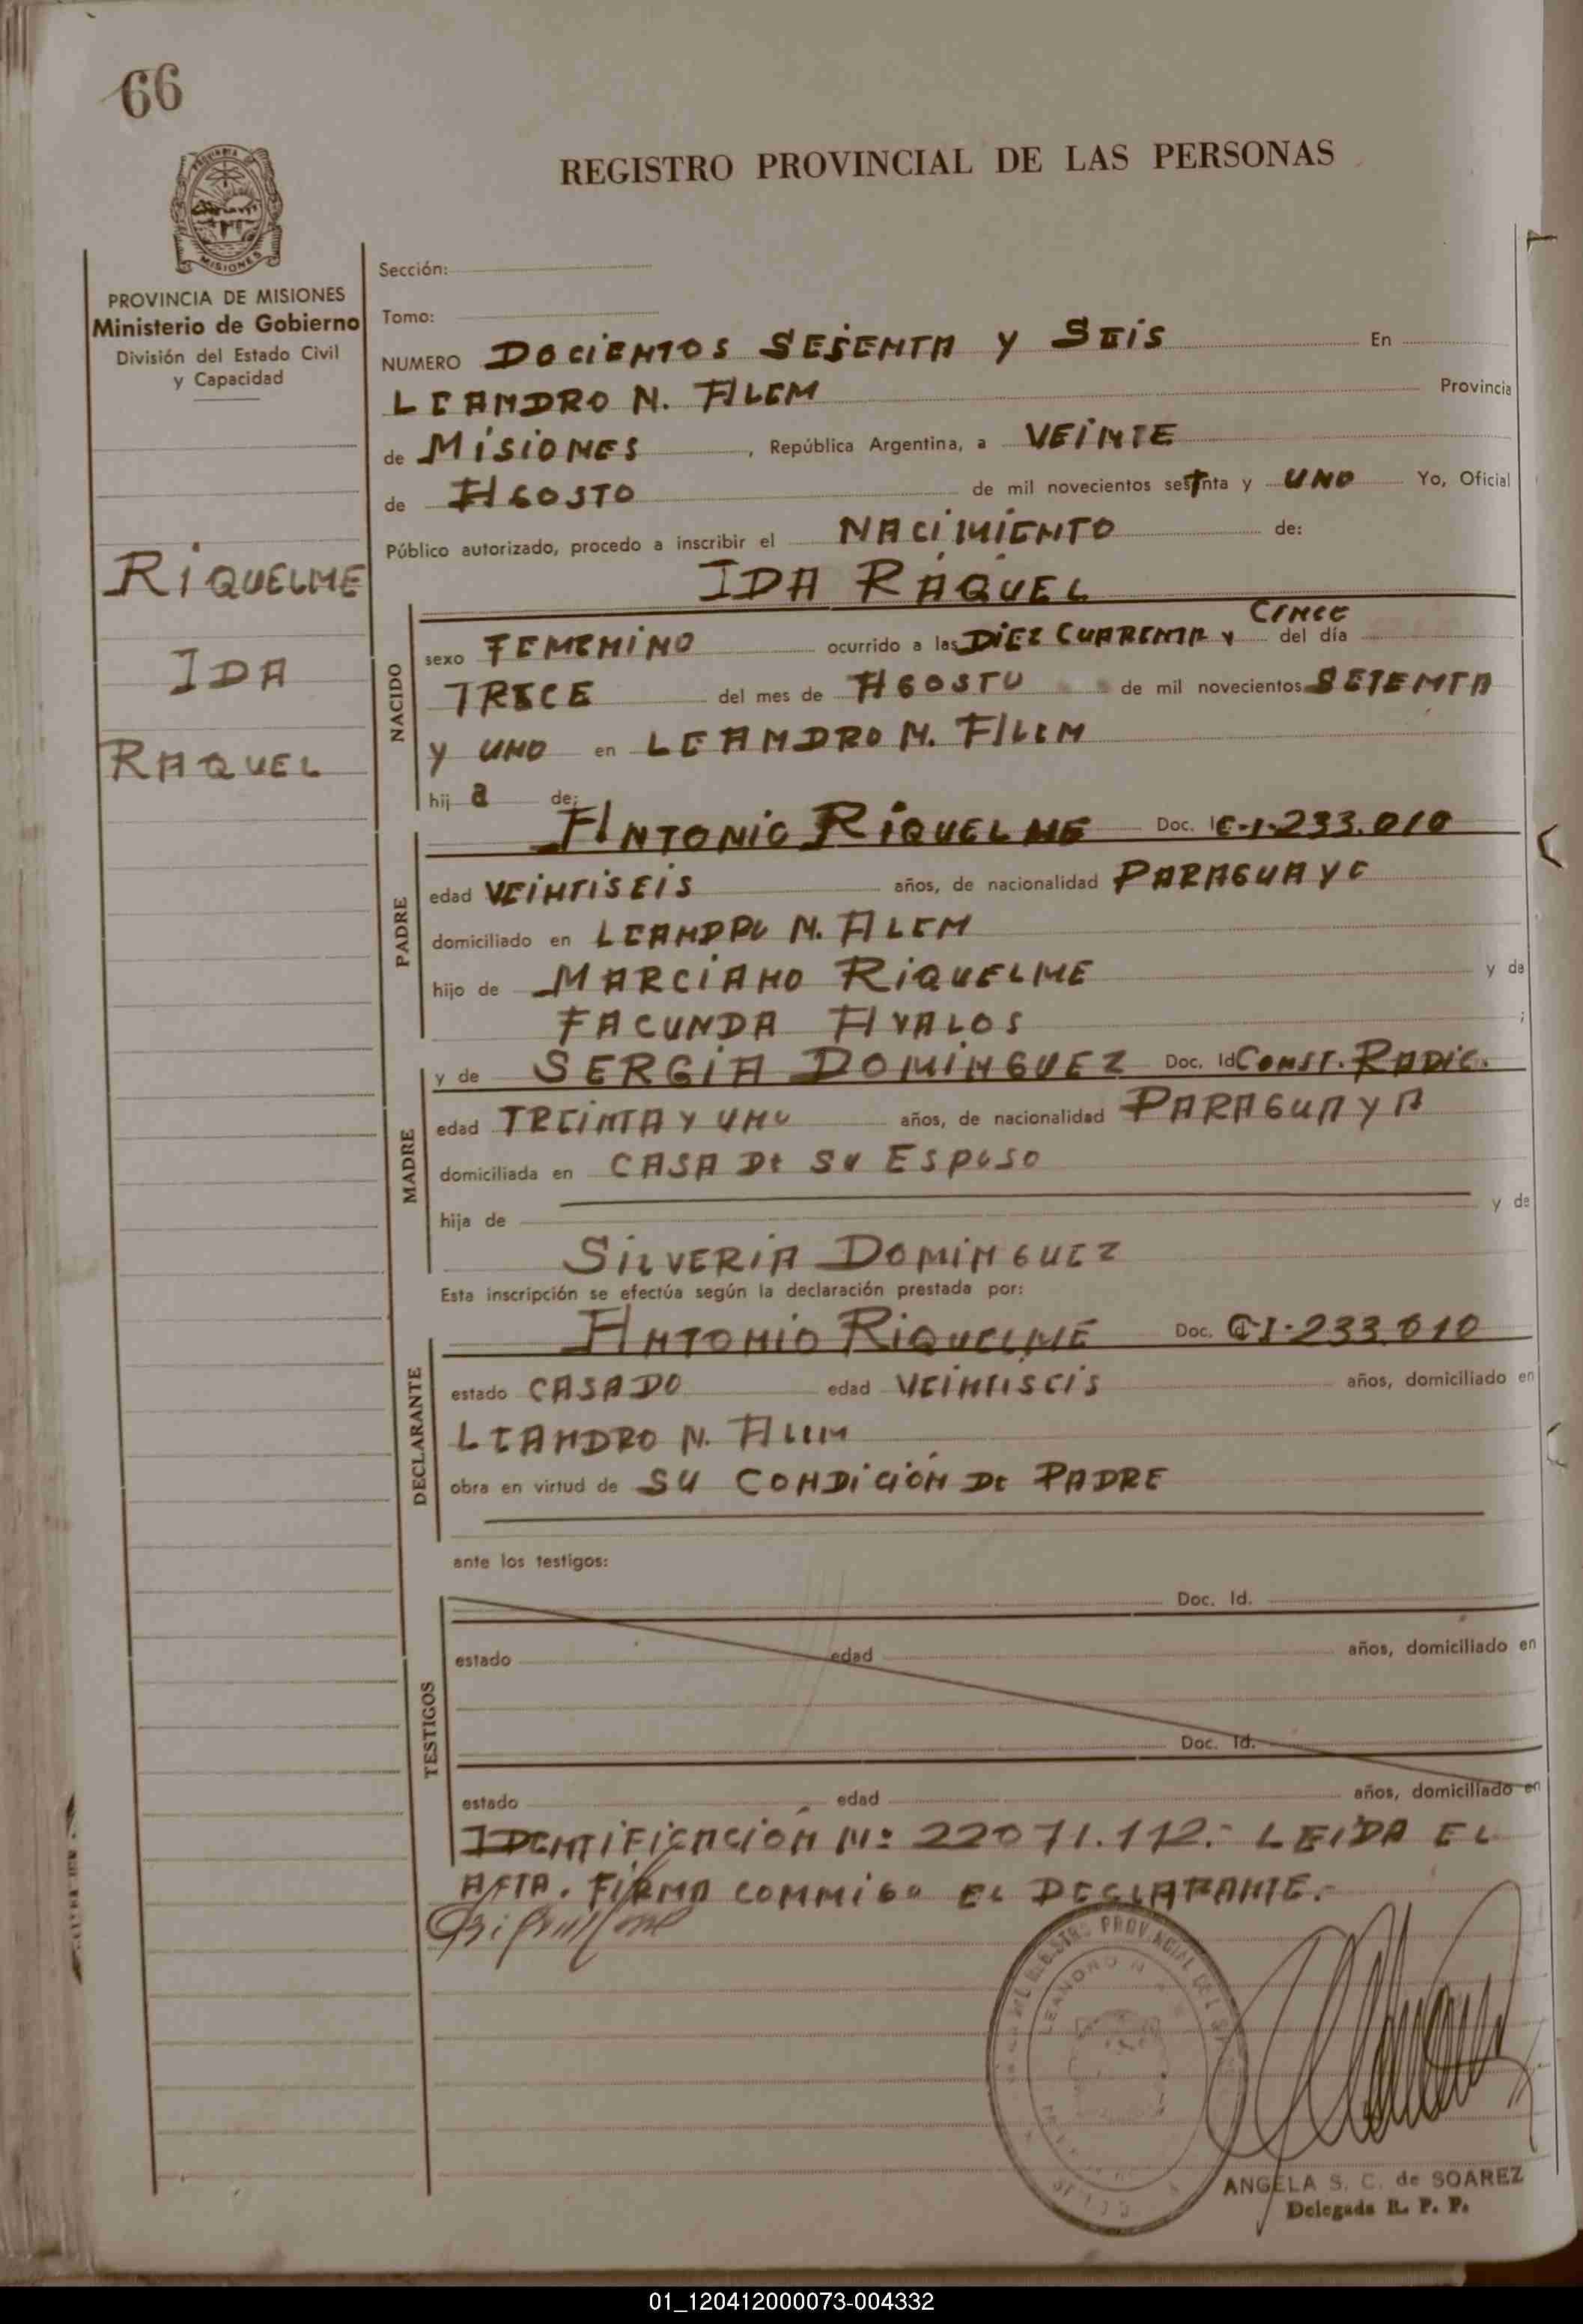 66
REGISTRO PROVINCIAL DE LAS PERSONAS
PROVINCIA DE MISIONES
MISIONES
PROVINCIA DE MISIONES
Ministerio de Gobierno
División del Estado Civil
y Capacidad
RIQUELME
IDA
RAQUEL
Sección:
Tomo:
NUMERO DOCIENTOS SESENTA Y SEIS En
LEANDRO N. ALEM Provincia
de MISIONES , República Argentina, a VEINTE
de AGOSTO de mil novecientos setenta y UNO Yo, Oficial
Público autorizado, procedo a inscribir el NACIMIENTO de:
IDA RAQUEL
NACIDO
sexo FEMENINO ocurrido a las DIEZ CUARENTA Y CINCO del día
TRECE del mes de AGOSTO de mil novecientos SETENTA
Y UNO en LEANDRO N. ALEM
hij a de:
PADRE
ANTONIO RIQUELME Doc. Id C-I-233.010
edad VEINTISEIS años, de nacionalidad PARAGUAYO
domiciliado en LEANDRO N. ALEM
hijo de MARCIANO RIQUELME y de
FACUNDA AVALOS ;
MADRE
y de SERGIA DOMINGUEZ Doc. Id CONST. RADIC.
edad TREINTA Y UNO años, de nacionalidad PARAGUAYA
domiciliada en CASA DE SU ESPOSO
hija de y de
SILVERIA DOMINGUEZ
Esta inscripción se efectúa según la declaración prestada por:
DECLARANTE
ANTONIO RIQUELME Doc. Id C-I-233.010
estado CASADO edad VEINTISEIS años, domiciliado en
LEANDRO N. ALEM
obra en virtud de SU CONDICIÓN DE PADRE
ante los testigos:
TESTIGOS
Doc. Id.
estado edad años, domiciliado en
Doc. Id.
estado edad años, domiciliado en
IDENTIFICACIÓN Nº 22071.112.- LEIDA EL
ACTA. FIRMA CONMIGO EL DECLARANTE.-
ANGELA S. C. de SOAREZ
Delegada R. P. P.
01_120412000073-004332